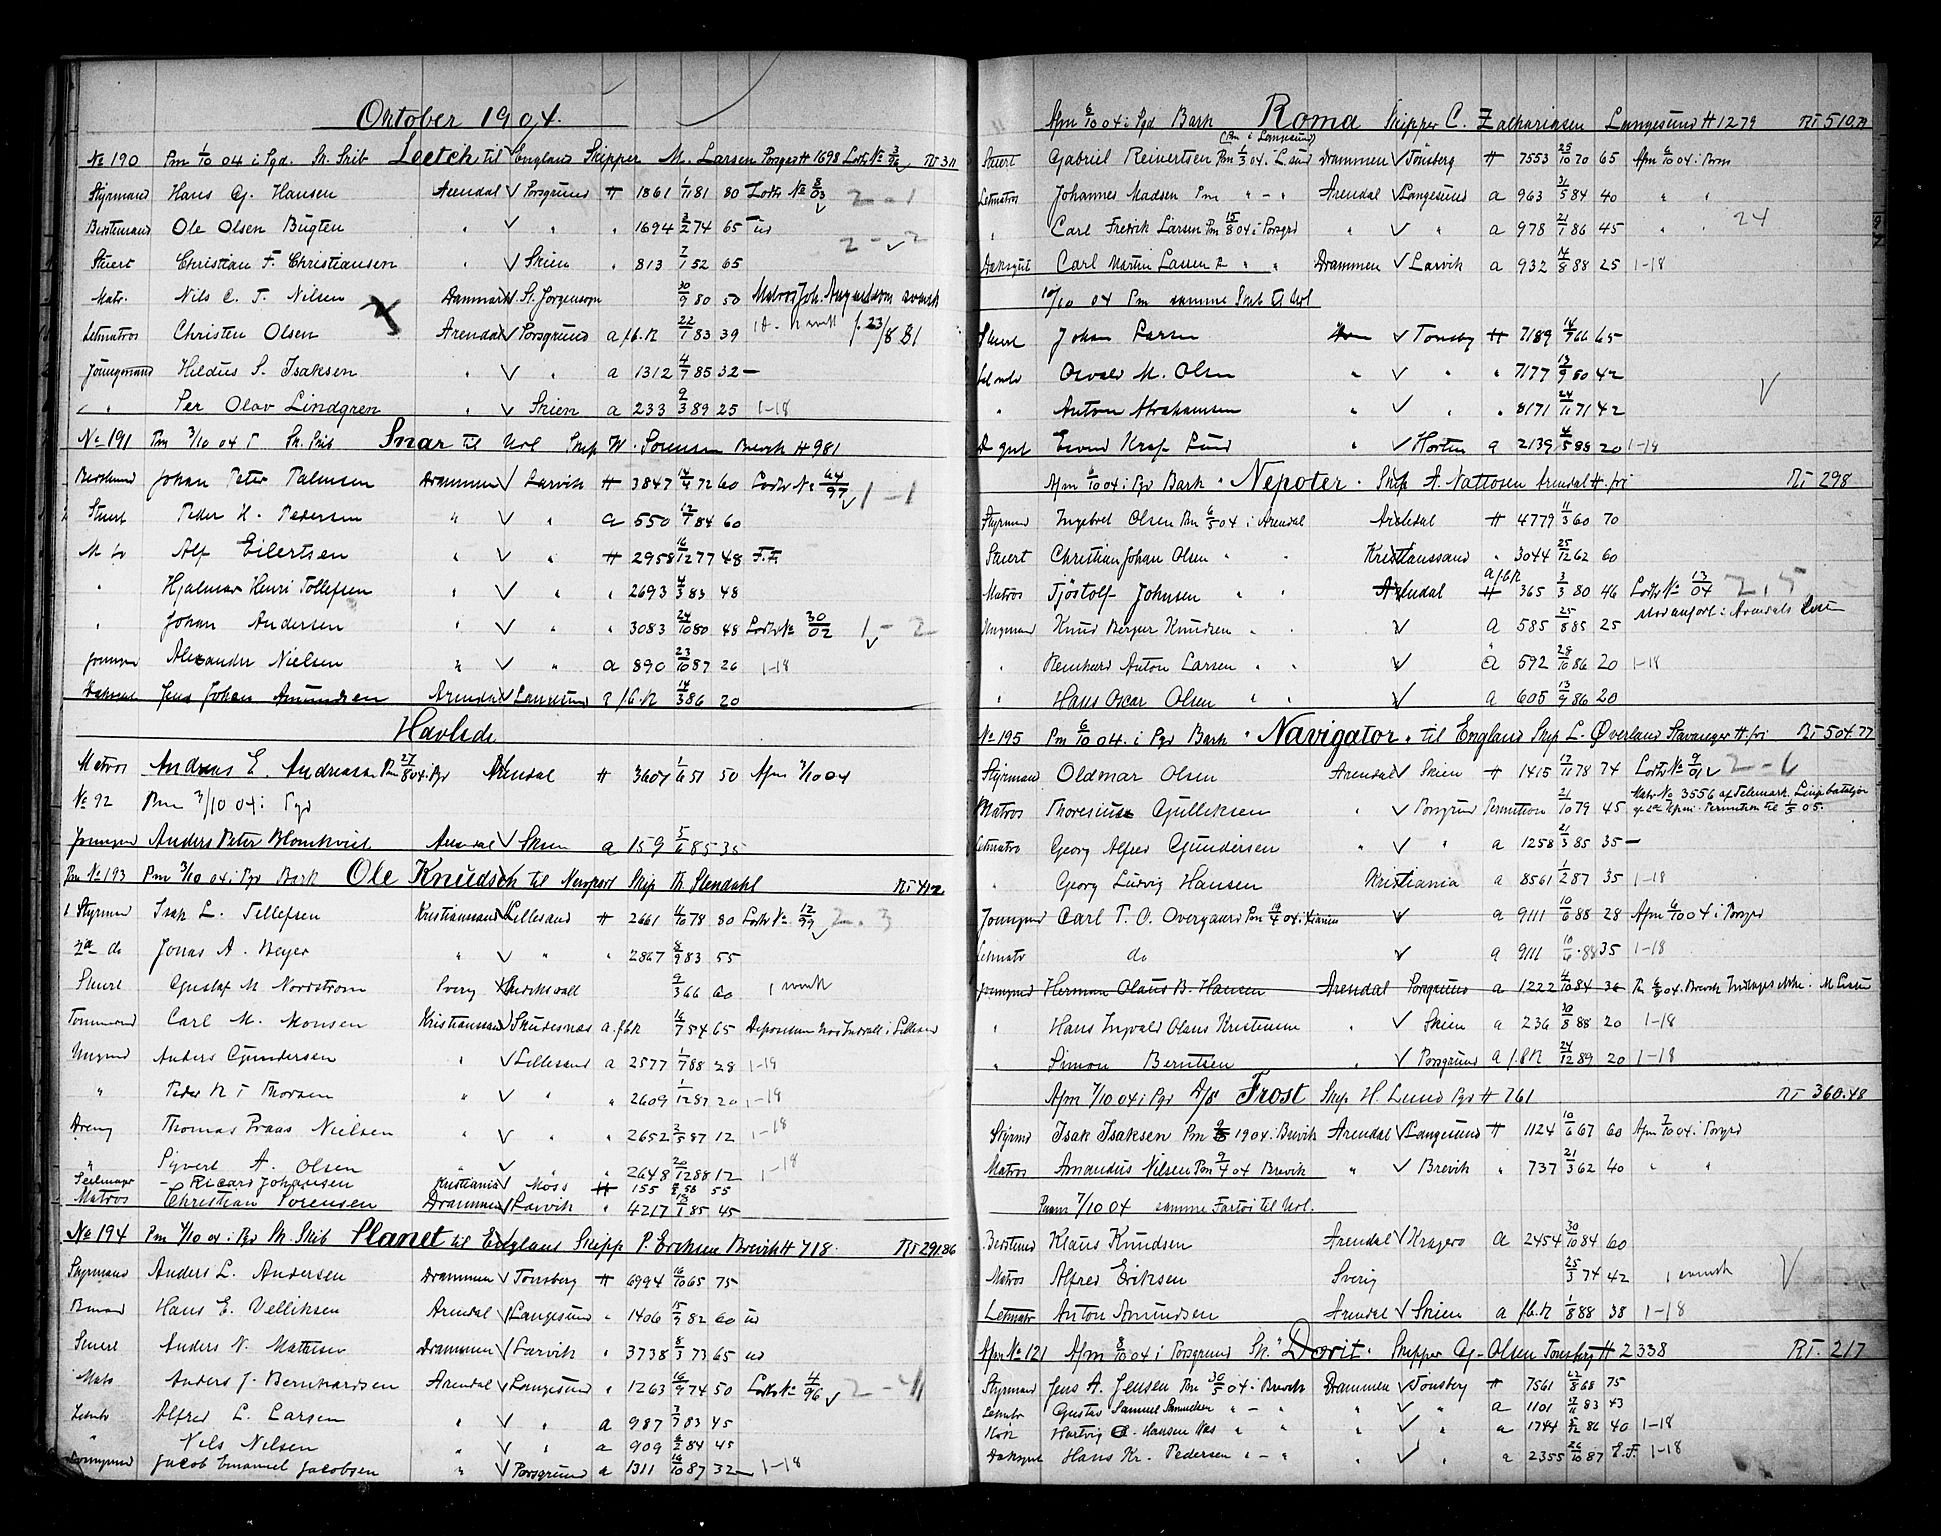 Oktober 1904.
No 190 Pm 1/10 04 i Pgd. Sk. Skib Leetch til England Skipper M. Larsen Porsgr H 1698 Lods No 3/76 RT 311
Styrmand Hans G. Hansen Arendal V Porsgrund H 1861 1/1 81 80 Lods No 8/03 2-1
Bestemand Ole Olsen Bugten " V " " 1694 3/2 74 65 ud 2-2
Stuert Christian F. Christiansen " V Skien " 813 7/1 52 65
Matr. Nils C. T. Nilsen Danmark St. Jorgensom 30/9 80 50 Matros Joh. Augustsson svensk
Letmatros Christen Olsen Arendal V Porsgrund a f.b.R 22/1 83 39 f. 23/8 81
Jöungmand Hildus S. Isaksen " V " a 1312 4/7 85 32 —
" Per Olav Lindgren " V Skien a 233 9/3 89 25 1-18
No 191 Pm 3/10 04 Sk. Skib Snar til Hol Skip W. Sorensen Brevik H 981
Bestmand Johan Peter Palmsen Drammen V Larvik H 3847 14/4 72 60 Lods No 64/97 1-1
Stuert Peder H. Pedersen " V " a 550 12/7 84 60
Alf Eilertsen " V " H 2958 16/12 77 48 F.F.
" Hjalmar Henri Tollefsen " V " " 2693 4/3 83 48
" Johan Andersen " V " " 3083 24/10 80 48 Lods No 30/02 1-2
Alexander Nielsen " V " a 890 23/10 87 26 1-18
Jens Johan Amundsen Arendal V Langesund a f.b.R 14/3 86 20
Havlide
Matros Andreas E. Andreasen Pm 27/8 04 i Pgr Arendal H 3607 1/6 51 50 Afm 3/10 04
No 92 Pm 3/10 04 i Pgr
Joungmd Anders Peter Blomkvist Arendal V Skien a 159 5/6 85 35
Pm No 193 Pm 3/10 04 i Pgr Bark Ole Knudsen til Newport Skip Th Stendahl RT 412
1 Styrmd Isak L. Tellefsen Kristianssand V Lillesand H 2661 4/10 78 80 Lods No 12/99 2.3
2a do Jonas A. Beyer " V " " 2867 8/9 83 55
Stuert Gustaf M. Nordström Sverg 9/3 66 60
Tommermd Carl M. Monsen Kristianssand V Skudesnes a f.b.R 16/7 54 65
Ungmd Anders Gundersen " V Lillesand a 2577 1/7 88 28 1-18
" Peder N T Thorsen " V " " 2609 1/12 87 20 1-18
Dreng Thomas Praas Nielsen " V " " 2652 2/5 87 12 1-18
" Syvert A. Olsen " V " " 2648 20/12 88 12 1-18
Seilmager Ricard Johansen Kristiania V Moss H 155 56 55
Matros Christian Sorensen Drammen V Larvik " 4217 85 45
No 194 Pm 4/10 04 i Pgr Sk. Skib Planet til England Skipp P. Eriksen Brevik H 718 RT 291.86
Styrmand Anders L. Andersen Drammen V Tonsberg H 6994 16/10 65 75
Bmand Hans E. Velliksen Arendal V Langesund " 1406 15/9 82 60 ud
Stuert Anders N. Mathisen Drammen V Larvik " 3738 8/3 73 65 ud
Mats Anders J. Bernhardsen Arendal V Langesund " 1263 16/9 74 50 Lods No 4/96 2-4
Letmtr Alfred L. Larsen " V " a 987 3/7 83 45
" Nils Nilsen " V " a 909 6/2 84 45
Joungmd Jacob Emanuel Jacobsen " V Porsgrund a 1311 16/10 87 32 1-18
Afm 6/10 04 i Pgd Bark Roma Skipper C. Zachariasen Langesund H 1279 RT 510.
(Pm i Langesund)
Stuert Gabriel Reinertsen Pm 1/3 04 i L.sund Drammen V Tönsberg H 7553 25/10 70 65 Afm 6/10 04 i Prsr
Letmatros Johannes Madsen Pm " - " Arendal V Langesund a 963 31/5 84 40 " "
" Carl Fredrik Larsen Pm 15/8 04 i Porsgrd " V " a 978 21/1 86 45 " " 24
Daksgut Carl Martin Lassen " " Drammen V Larvik a 932 14/8 88 25 1-18
10/10 04 Pm samme Skib til Hol
Stuert Johan Larsen V Tonsbg H 7189 18/9 66 65
Letmtr Osvald M. Olsen " V " " 7177 13/9 80 42
" Anton Abrahamsen " V " " 8171 24/11 71 42
D gut Eivind Kraf Lund " V Horten a 2139 4/5 88 20 1-18
Afm 6/10 04 i Pgr Bark "Nepoter" Skip A. Nattosen Arendal H fri RT 298
Styrmand Ingebret Olsen Pm 6/5 04 i Arendal Arendal H 4779 11/3 60 70
Stuert Christian Johan Olsen " " Kristianssand " 3044 25/12 62 60
Matros Tjöstolf Johnsen " " Arendal a f.b.R 365 3/3 80 46 Lods No 13/04 2.5
Ungmand Knud Berger Knudsen " " V a 585 25/8 85 25
" Reinhard Anton Larsen " " V a 592 28/10 86 20 1-18
" Hans Oscar Olsen " " V a 605 13/9 86 20
No 195 Pm 6/10 04 i Pgr Bark "Navigator" til England Skip L. Øverland Stavanger H fri RT 504.77
Styrmand Oldmar Olsen Arendal V Skien H 1415 12/11 78 74 Lods No 9/01 2-6
Matros Thoresius Gulliksen " V Porsgrund Permittion 21/10 79 45 Matr No 3556 af Telemark. Permittion til 1/5 05.
Letmatro Georg Alfred Gundersen " V " a 1258 21/3 85 35 —
" Georg Ludvig Hansen Kristiania a 8561 1/2 87 35 1-18
Joungmd Carl T. O. Overgaard Pm 19/4 04 i Kiania V a 9111 10/6 88 28 Afm 6/10 04 i Porsgrd
Letmatr do V a 9111 10/6 88 35 1-18
Joungmd Herman Olaus B. Hansen Arendal Porsgrund a 1222 4/10 84 36
" Hans Ingvald Olaus Kristensen " V Skien a 236 30/8 88 20 1-18
" Simon Berntsen V Porsgrund a f.b.R 24/12 89 20 1-18
Afm 7/10 04 i Pgr D/S Frost Skip H. Lund Pgr H 761 RT 360.48
Styrmd Isak Isaksen Pm 1904 i Brevik Arendal V Langesund H 1124 10/6 67 60 Afm 7/10 04 i Porsgrd
Matros Amandus Nilsen Pm 9/4 04 Brevik " V Brevik " 737 21/3 62 40 " "
Paam 7/10 04 samme Fartöi til Hol.
Bestmd Klaus Knudsen Arendal V Kragerö a 2454 30/10 84 60
Matros Alfred Eriksen Sverig 25/3 74 42 1 svensk V
Letmatr Anton Amundsen Arendal V Skien a f.b.R 1/8 88 38 1-18
Afm No 121 Afm 8/10 04 i Porsgrund Sk. "Dorit" Skipper G. Olsen Tonsberg H 2338 RT. 217
Styrmand Jens A. Jensen Pm 30/5 04 i Brevik Drammen V Tönsberg H 7561 22/8 68 75
Letmtr Gustav Samuel Samuelsen " - " " V " a 1101 9/11 83 43
Kok Hartvig Hansen Næs " " " V " a 1744 5/12 86 40 1-18
Daksgut Hans Kr. Pedersen " - " V " a 2355 26/10 87 F.F. 1-18